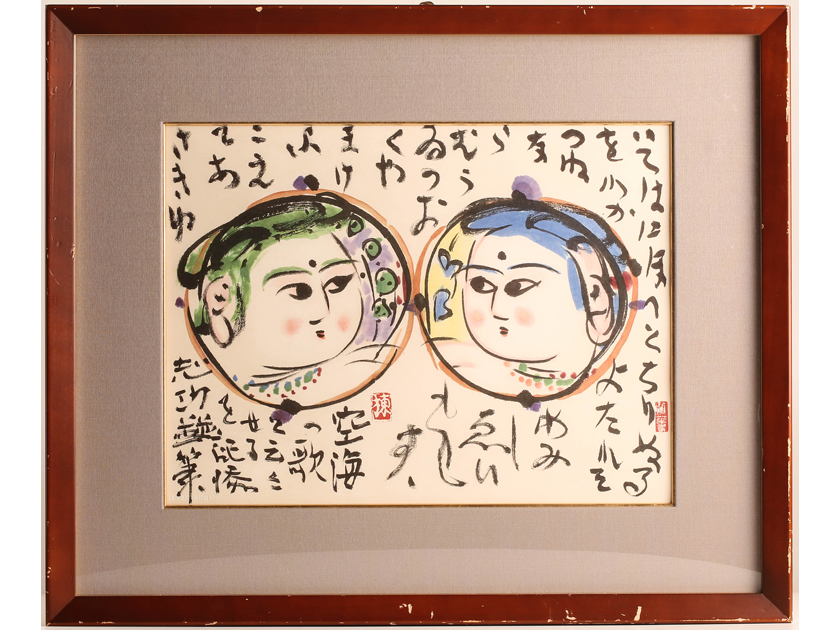 いろはにほへとちりぬる
をわか
よたれそ
つね
な
ら
むう
ゐのお
くや
まけ
ふ
こえ
てあ
さきゆ
めみ
しゑひ
もせす
空海
の歌